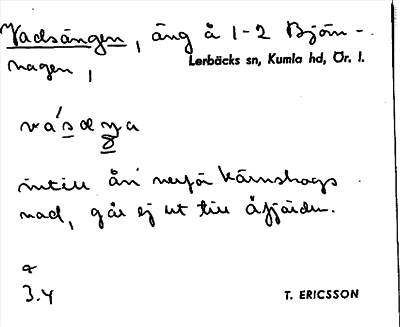 Vadsängen, äng å 1-2 Björn-
hagen,
Lerbäcks sn, Kumla hd, Ör. l.
intill ån nerför
nad, går ej ut till åfjärden.
a
3.4
T. ERICSSON